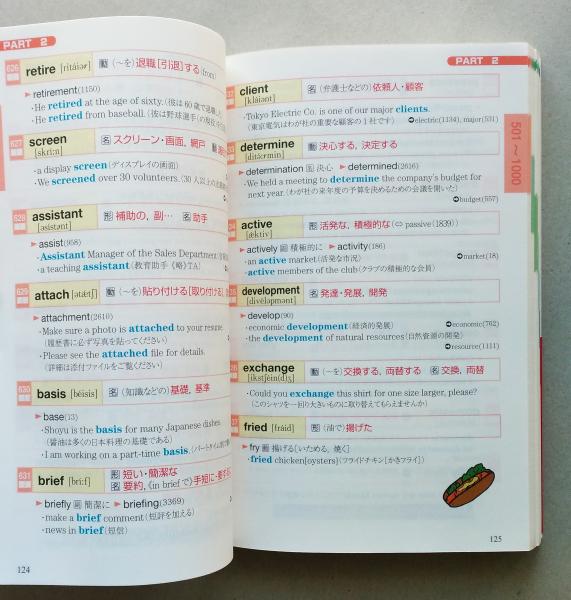 PART 2
626 retire [ritáiər] 動 (〜を)退職[引退]する(from)
▶retirement(1150)
・He retired at the age of sixty.(彼は60歳で退職し
・He retired from baseball.(彼は野球選手の現役
627 screen [skríːn] 名 スクリーン・画面, 網戸 動
・a display screen(ディスプレイの画面)
・We screened over 30 volunteers.(30人以上の
628 assistant [əsístənt] 形 補助の, 副… 名 助手
▶assist(958)
・Assistant Manager of the Sales Department
・a teaching assistant(教育助手《略》TA)
629 attach [ətǽtʃ] 動 (〜を)貼り付ける[取り付ける],
▶attachment(2610)
・Make sure a photo is attached to your resume.
(履歴書に必ず写真を貼ってください)
・Please see the attached file for details.
(詳細は添付ファイルをご覧ください)
630 basis [béisis] 名 (知識などの)基礎, 基準
▶base(13)
・Shoyu is the basis for many Japanese dishes.
(醤油は多くの日本料理の基礎である)
・I am working on a part-time basis.(パートタイム
631 brief [bríːf] 形 短い・簡潔な
名 要約,《in briefで》手短に・要する
▶briefly 副 簡潔に ▶briefing(3369)
・make a brief comment(短評を加える)
・news in brief(短信)
124
PART 2
501〜1000
32 client [kláiənt] 名 (弁護士などの)依頼人・顧客
・Tokyo Electric Co. is one of our major clients.
(東京電気はわが社の重要な顧客の1社です) ➡electric(1134), major(531)
determine [ditə́ːrmin] 動 決心する, 決定する
▶determination 名 決心 ▶determined(2616)
・We held a meeting to determine the company's budget for
next year.(わが社の来年度の予算を決めるための会議を開いた)
➡budget(557)
34 active [ǽktiv] 形 活発な, 積極的な(⇔passive(1839))
▶actively 副 積極的に ▶activity(186)
・an active market(活発な市況) ➡market(18)
・active members of the club(クラブの積極的な会員)
development [divéləpmənt] 名 発達・発展, 開発
▶develop(90)
・economic development(経済的発展) ➡economic(762)
・the development of natural resources(自然資源の開発)
➡resource(1111)
36 exchange [ikstʃéin(d)ʒ] 動 (〜を)交換する, 両替する 名 交換, 両替
・Could you exchange this shirt for one size larger, please?
(このシャツを一回り大きいものに取り替えてもらえませんか)
37 fried [fráid] 形 (油で)揚げた
▶fry 動 揚げる[いためる, 焼く]
・fried chicken[oysters](フライドチキン[かきフライ])
125